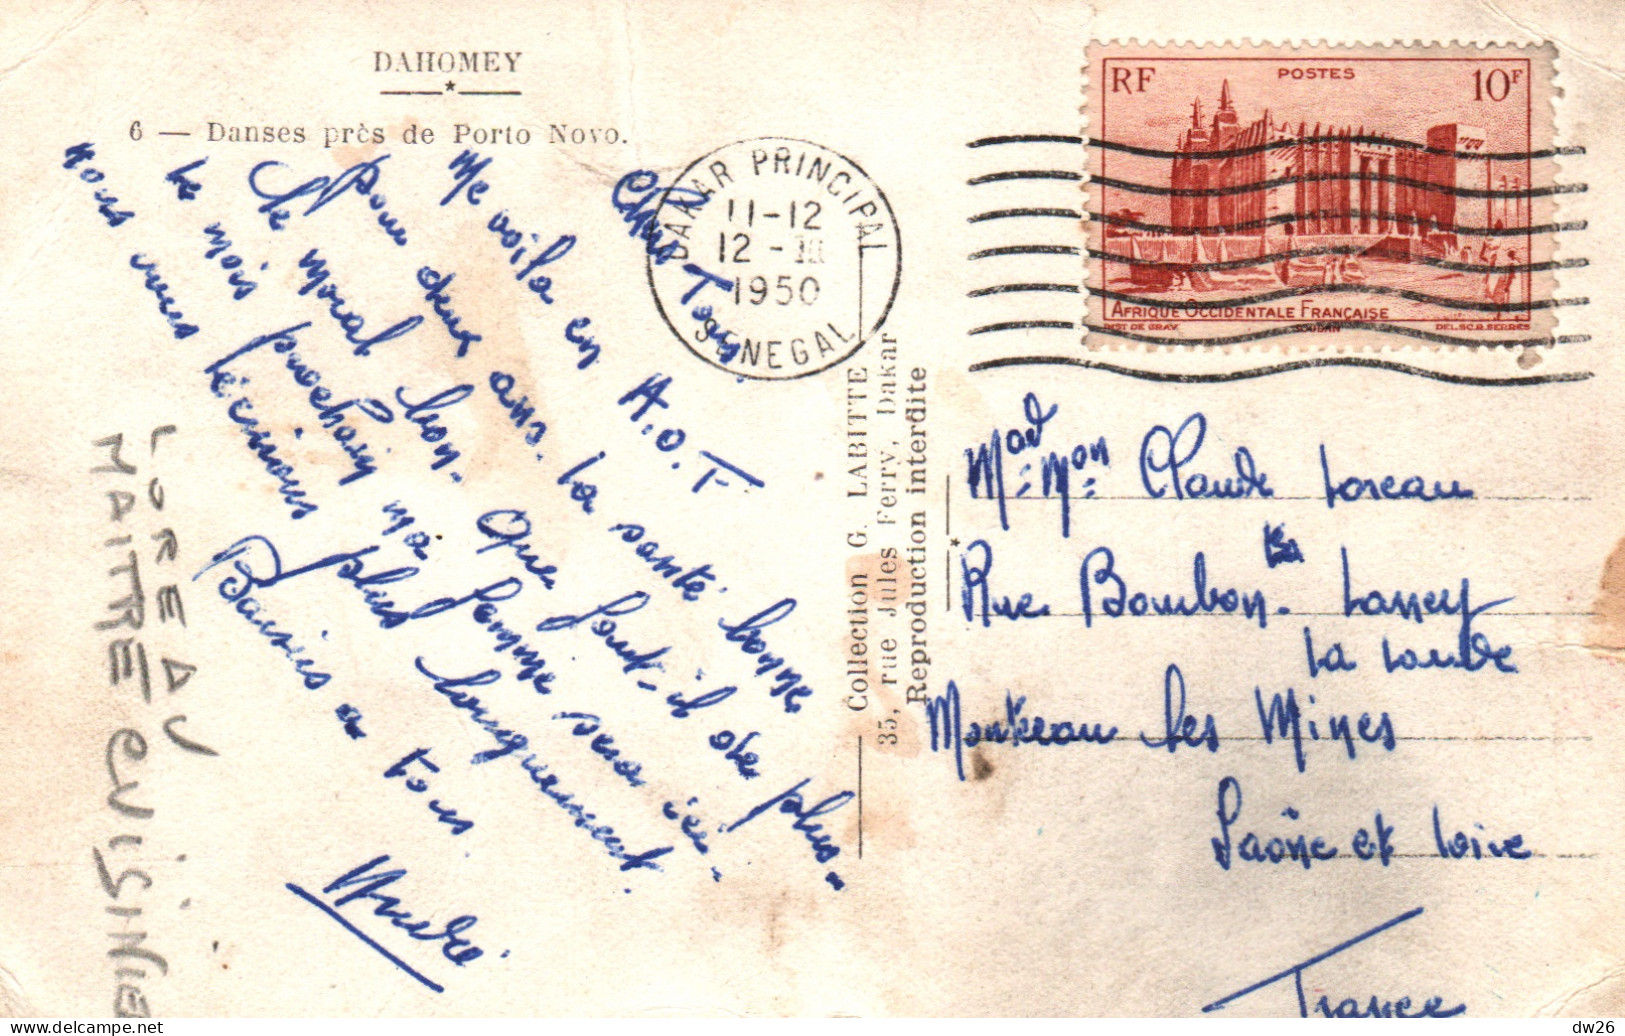 DAHOMEY
6 — Danses près de Porto Novo.
Chers Tous
Me voila en A.O.F
pour deux ans. La santé bonne
le moral bon. Que faut-il de plus-
le mois prochain ma femme sera ici-
nous vous écrirons plus longuement.
Baisers a tous.
André
LOREAU
MAITRE CUISINIE
DAKAR PRINCIPAL
11-12
12 - III
1950
SENEGAL
Collection G. LABITTE
35, rue Jules Ferry, Dakar
Reproduction interdite
RF
POSTES
10F
AFRIQUE OCCIDENTALE FRANÇAISE
INST DE GRAV.
SOUDAN
DEL.SC.R.SERRES
Mad = Mon Claude Loreau
Rue Bourbon Lancy
La Loude
Montceau les Mines
Saône et Loire
France
dw26